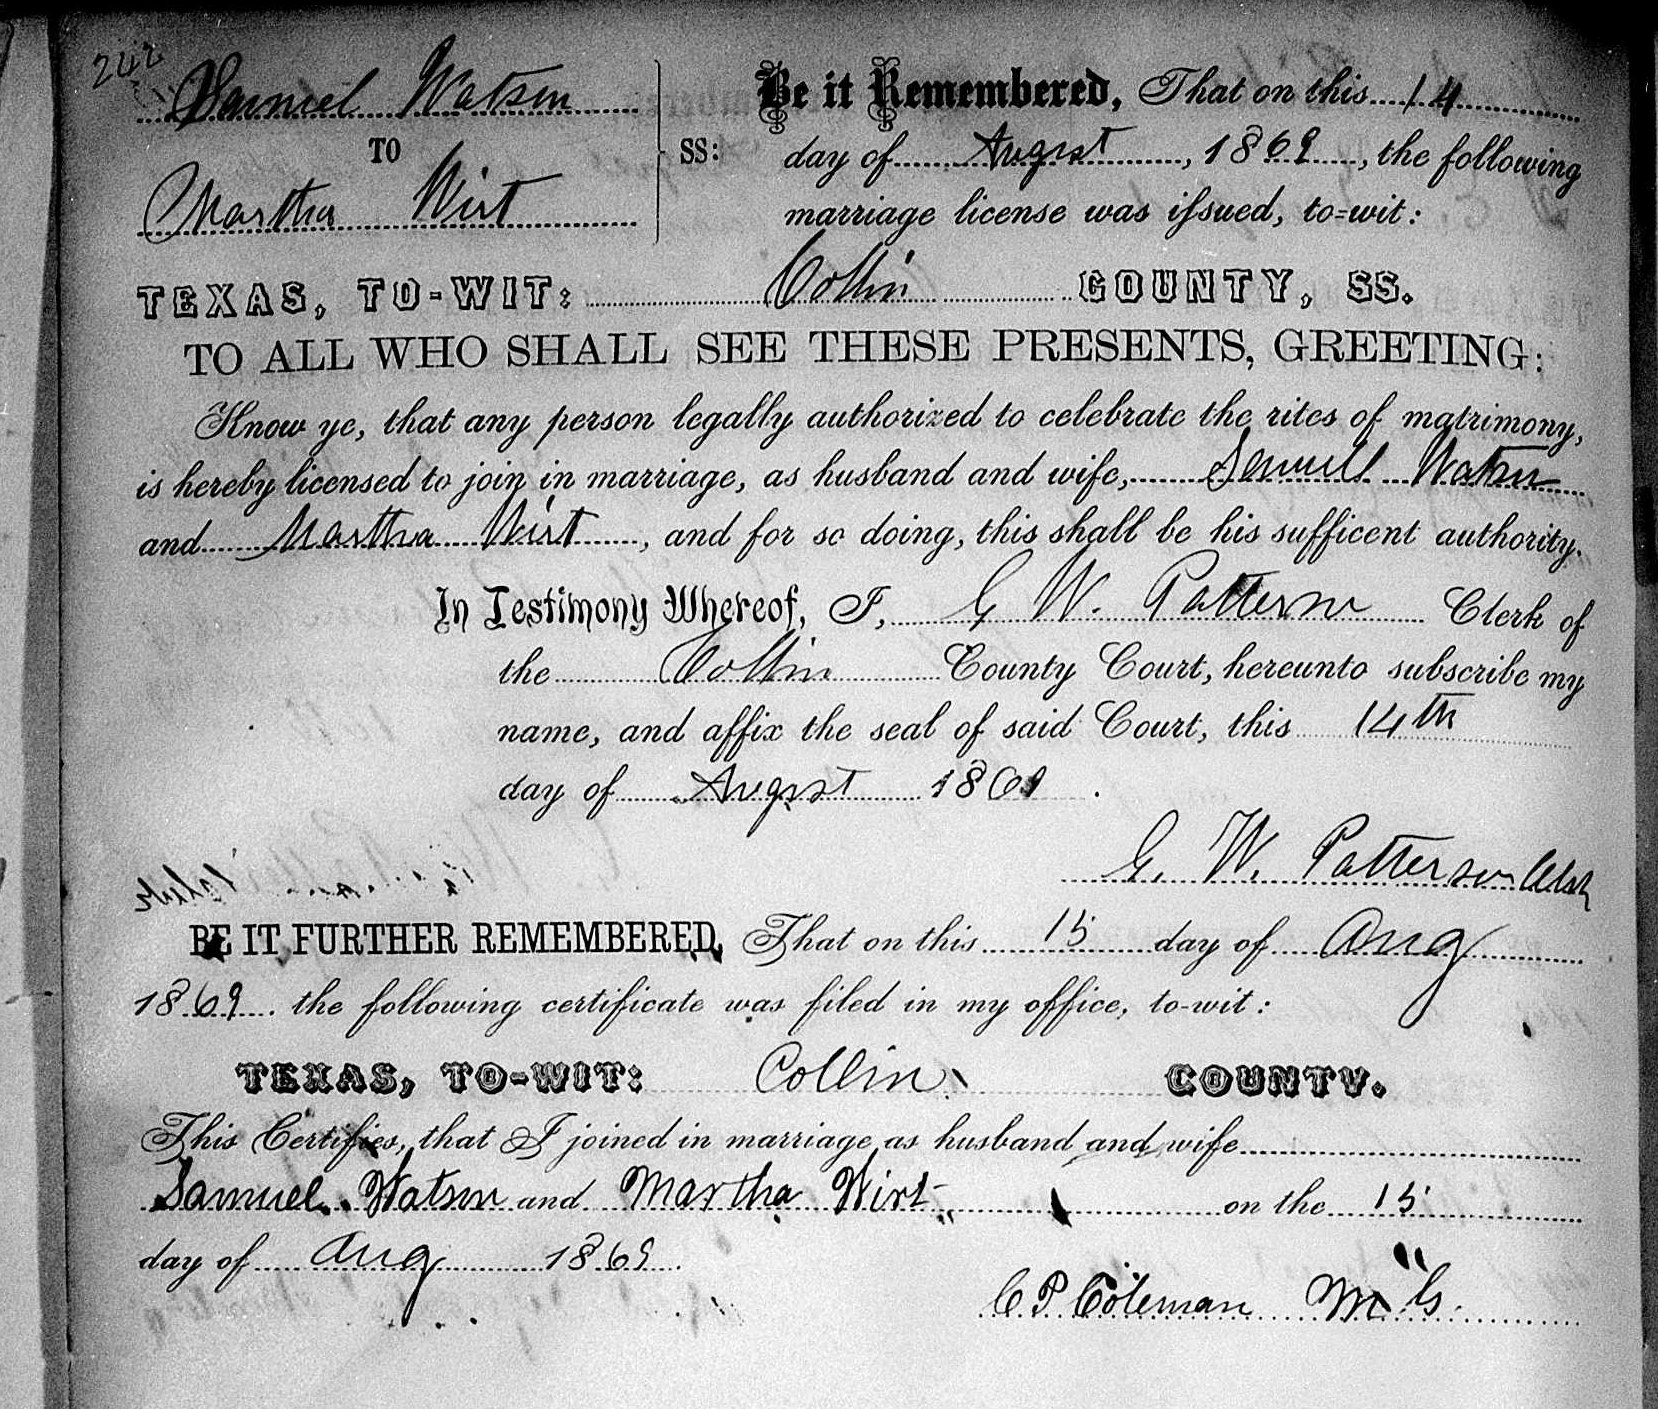 242
Samuel Watson
TO
Martha Wirt
SS:
Be it Remembered, That on this 14
day of August, 1869, the following
marriage license was issued, to-wit:
TEXAS, TO-WIT: Collin COUNTY, SS.
TO ALL WHO SHALL SEE THESE PRESENTS, GREETING:
Know ye, that any person legally authorized to celebrate the rites of matrimony,
is hereby licensed to join in marriage, as husband and wife, Samuel Watson
and Martha Wirt, and for so doing, this shall be his sufficent authority.
In Testimony Whereof, I, G W. Patterson Clerk of
the Collin County Court, hereunto subscribe my
name, and affix the seal of said Court, this 14th
day of August 1869.
G. W. Patterson Clerk
BE IT FURTHER REMEMBERED, That on this 15 day of Aug
1869. the following certificate was filed in my office, to-wit:
TEXAS, TO-WIT: Collin COUNTY.
This Certifies, that I joined in marriage as husband and wife
Samuel Watson and Martha Wirt on the 15
day of Aug 1869.
C. P. Coleman M. G.